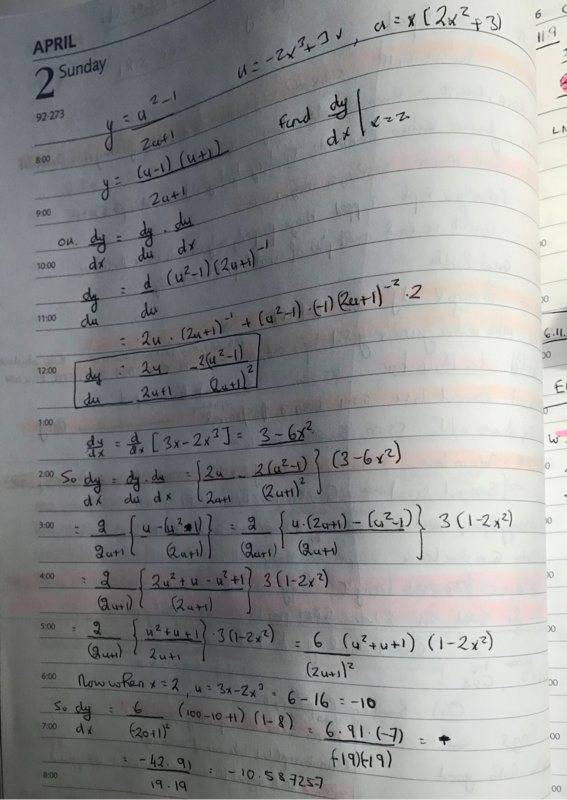 APRIL
2 Sunday
92-273
u = -2x³+3x, u = x[2x²+3)
y = u²-1 / 2u+1
find dy/dx | x=2
8:00
y = (u-1)(u+1) / 2u+1
9:00
dy/dx = dy/du · du/dx
10:00
dy/du = d/du (u²-1)(2u+1)⁻¹
11:00
= 2u · (2u+1)⁻¹ + (u²-1)·(-1)(2u+1)⁻² · 2
12:00
dy/du = 2u/2u+1 - 2(u²-1)/(2u+1)²
1:00
du/dx = d/dx [3x-2x³] = 3-6x²
2:00
So dy/dx = dy/du · du/dx = {2u/2u+1 - 2(u²-1)/(2u+1)²} (3-6x²)
3:00
= 2/2u+1 {u-(u²-1)/(2u+1)} = 2/(2u+1) {u·(2u+1) - (u²-1)/(2u+1)} 3(1-2x²)
4:00
= 2/(2u+1) {2u²+u-u²+1/(2u+1)} 3(1-2x²)
5:00
= 2/(2u+1) {u²+u+1/2u+1} · 3(1-2x²) = 6(u²+u+1)(1-2x²)/(2u+1)²
6:00
Now when x=2, u = 3x-2x³ = 6-16 = -10
7:00
So dy/dx = 6/(-20+1)² (100-10+1)(1-8) = 6·91·(-7)/(-19)(-19) =
8:00
= -42.91/19.19 = -10.5873257